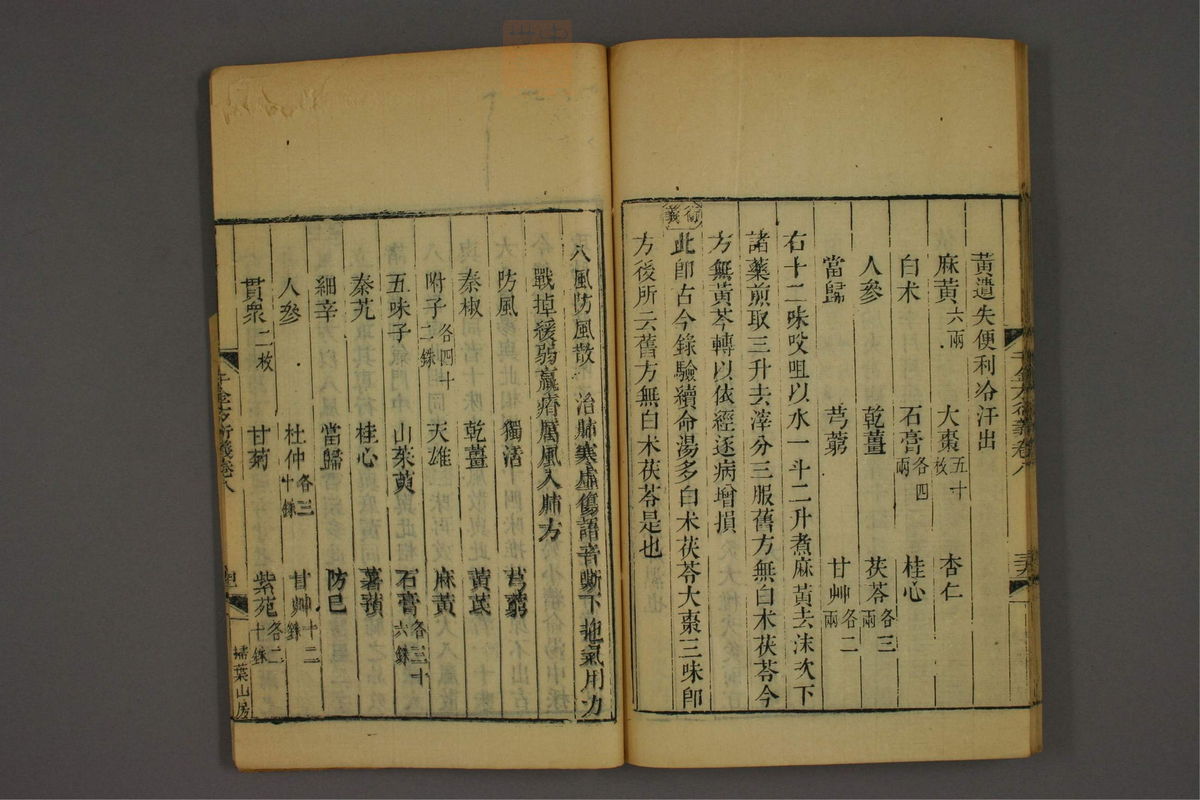 黃遺失便利冷汗出
麻黃六兩 大棗五十枚 杏仁
白术 石膏各四兩 桂心
人參 乾薑 茯苓各三兩
當歸 芎藭 甘艸各二兩
右十二味㕮咀以水一斗二升煮麻黃去沫次下
諸藥煎取三升去滓分三服舊方無白术茯苓今
方無黃芩轉以依經逐病增損
衍義
此卽古今錄驗續命湯多白术茯苓大棗三味卽
方後所云舊方無白术茯苓是也
千金方衍義卷八
八風防風散 治肺寒虛傷語音嘶下拖氣用力
戰掉緩弱羸瘠厲風入肺方
防風 獨活 芎藭
秦椒 乾薑 黃芪
附子各四十二銖 天雄 麻黃
五味子 山茱萸 石膏各三十六銖
秦艽 桂心 薯蕷
細辛 當歸 防巳
人參 杜仲各三十銖 甘艸十二銖
貫衆二枚 甘菊 紫菀各二十銖
千金方衍義卷八
掃葉山房